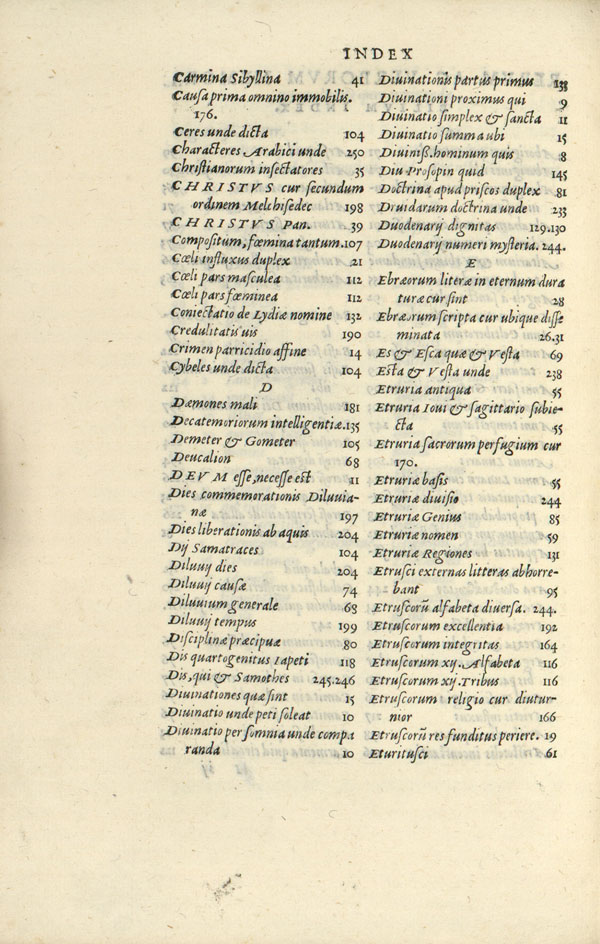 INDEX
Carmina Sibyllina 41
Cauſa prima omnino immobilis.
176.
Ceres unde dicta 104
Characteres Arabici unde 250
Chriſtianorum inſectatores 35
CHRISTVS cur ſecundum
ordinem Melchiſedec 198
CHRISTVS Pan. 39
Compoſitum, fœmina tantum. 107
Cœli influxus duplex 21
Cœli pars maſculea 112
Cœli pars fœminea 112
Coniectatio de Lydiæ nomine 132
Credulitatis uis 190
Crimen parricidio affine 14
Cybeles unde dicta 104
D
Dæmones mali 181
Decatemoriorum intelligentiæ. 135
Demeter & Gometer 105
Deucalion 68
DEVM eſſe, neceſſe eſt 11
Dies commemorationis Diluuia-
næ 197
Dies liberationis ab aquis 204
Dij Samatraces 104
Diluuij dies 204
Diluuij cauſæ 74
Diluuium generale 68
Diluuij tempus 199
Diſciplinæ præcipuæ 80
Dis quartogenitus Iapeti 118
Dis, qui & Samothes 245.246
Diuinationes quæ ſint 15
Diuinatio unde peti ſoleat 10
Diuinatio per ſomnia unde compa
randa 10
Diuinationis partus primus 138
Diuinationi proximus qui 9
Diuinatio ſimplex & ſancta 11
Diuinatio ſumma ubi 15
Diuiniß. hominum quis 8
Diu Proſopin quid 145
Doctrina apud priſcos duplex 81
Druidarum doctrina unde 233
Duodenarij dignitas 129.130
Duodenarij numeri myſteria. 244.
E
Ebræorum literæ in eternum dura
turæ cur ſint 28
Ebræorum ſcripta cur ubique diſſe
minata 26.31
Es & Eſca quæ & Veſta 69
Eſta & Veſta unde 238
Etruria antiqua 55
Etruria Ioui & ſagittario ſubie-
cta 55
Etruria ſacrorum perfugium cur
170.
Etruriæ baſis 55
Etruriæ diuiſio 244
Etruriæ Genius 85
Etruriæ nomen 59
Etruriæ Regiones 131
Etruſci externas litteras abhorre-
bant 95
Etruſcorũ alfabeta diuerſa. 244.
Etruſcorum excellentia 192
Etruſcorum integritas 164
Etruſcorum xij. Alfabeta 116
Etruſcorum xij. Tribus 116
Etruſcorum religio cur diutur-
nior 166
Etruſcorũ res funditus periere. 19
Eturituſci 61